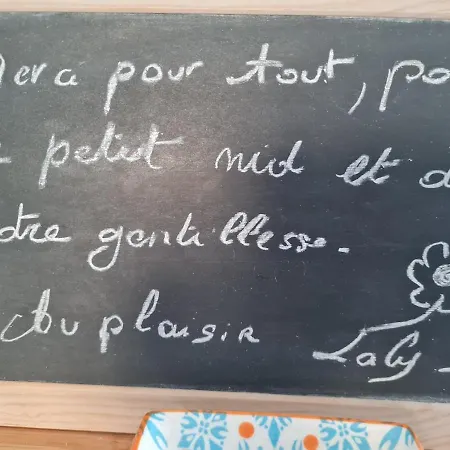 Merci pour tout, po
petit nid et d
otre gentillesse.
Au plaisir
Laly